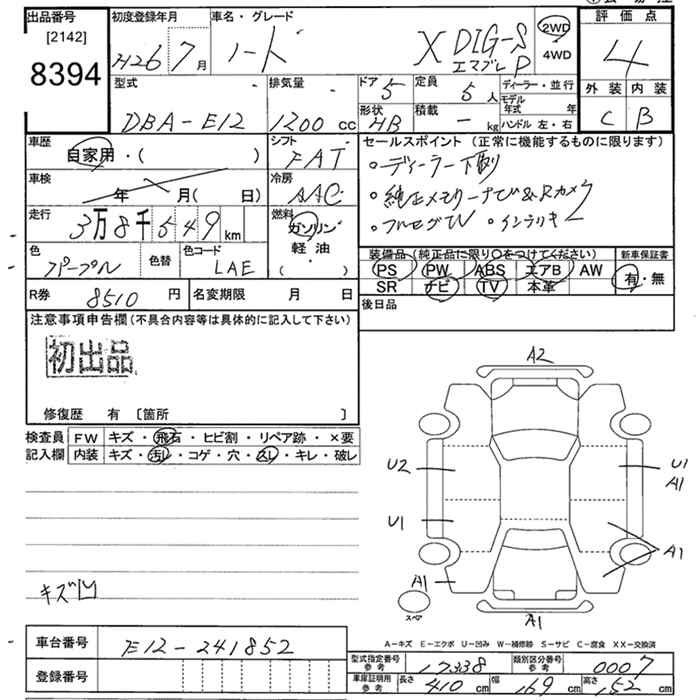 出品番号
[2142]
8394
初度登録年月
H26 7月
車名・グレード
ノート X DIG-S
エマブレP
2WD
4WD
評価点
4
外装 内装
C B
型式
DBA-E12
排気量
1200cc
ドア 5
形状 HB
定員 5人
積載 - kg
ディーラー・並行
モデル年式 年
ハンドル 左・右
車歴
自家用・( )
シフト
FAT
車検
年 月( 日)
冷房
AAC
走行
3万8千549km
燃料
ガソリン
軽・油
( )
色
パープル
色替
色コード
LAE
R券 8510円
名変期限 月 日
セールスポイント (正常に機能するものに限ります)
・ディーラー下取
・純正メモリーナビ&Rカメラ
・フルセグTV ・インテリキー
装備品(純正品に限り○をつけてください)
PS PW ABS エアB AW
SR ナビ TV 本革
新車保証書
有・無
後日品
注意事項申告欄(不具合内容等は具体的に記入して下さい)
初出品
修復歴 有 [箇所 ]
検査員
記入欄
FW キズ・飛石・ヒビ割・リペア跡・×要
内装 キズ・汚レ・コゲ・穴・スレ・キレ・破レ
キズ凹
A2
U2
U1
U1
A1
A1
A1
A1
スペア
車台番号
E12-241852
登録番号
A-キズ E-エクボ U-凹み W-補修跡 S-サビ C-腐食 XX-交換済
型式指定番号
参考
17338
類別区分番号
参考
0007
車庫証明用
参考
長さ 410cm
幅 169cm
高さ 152cm